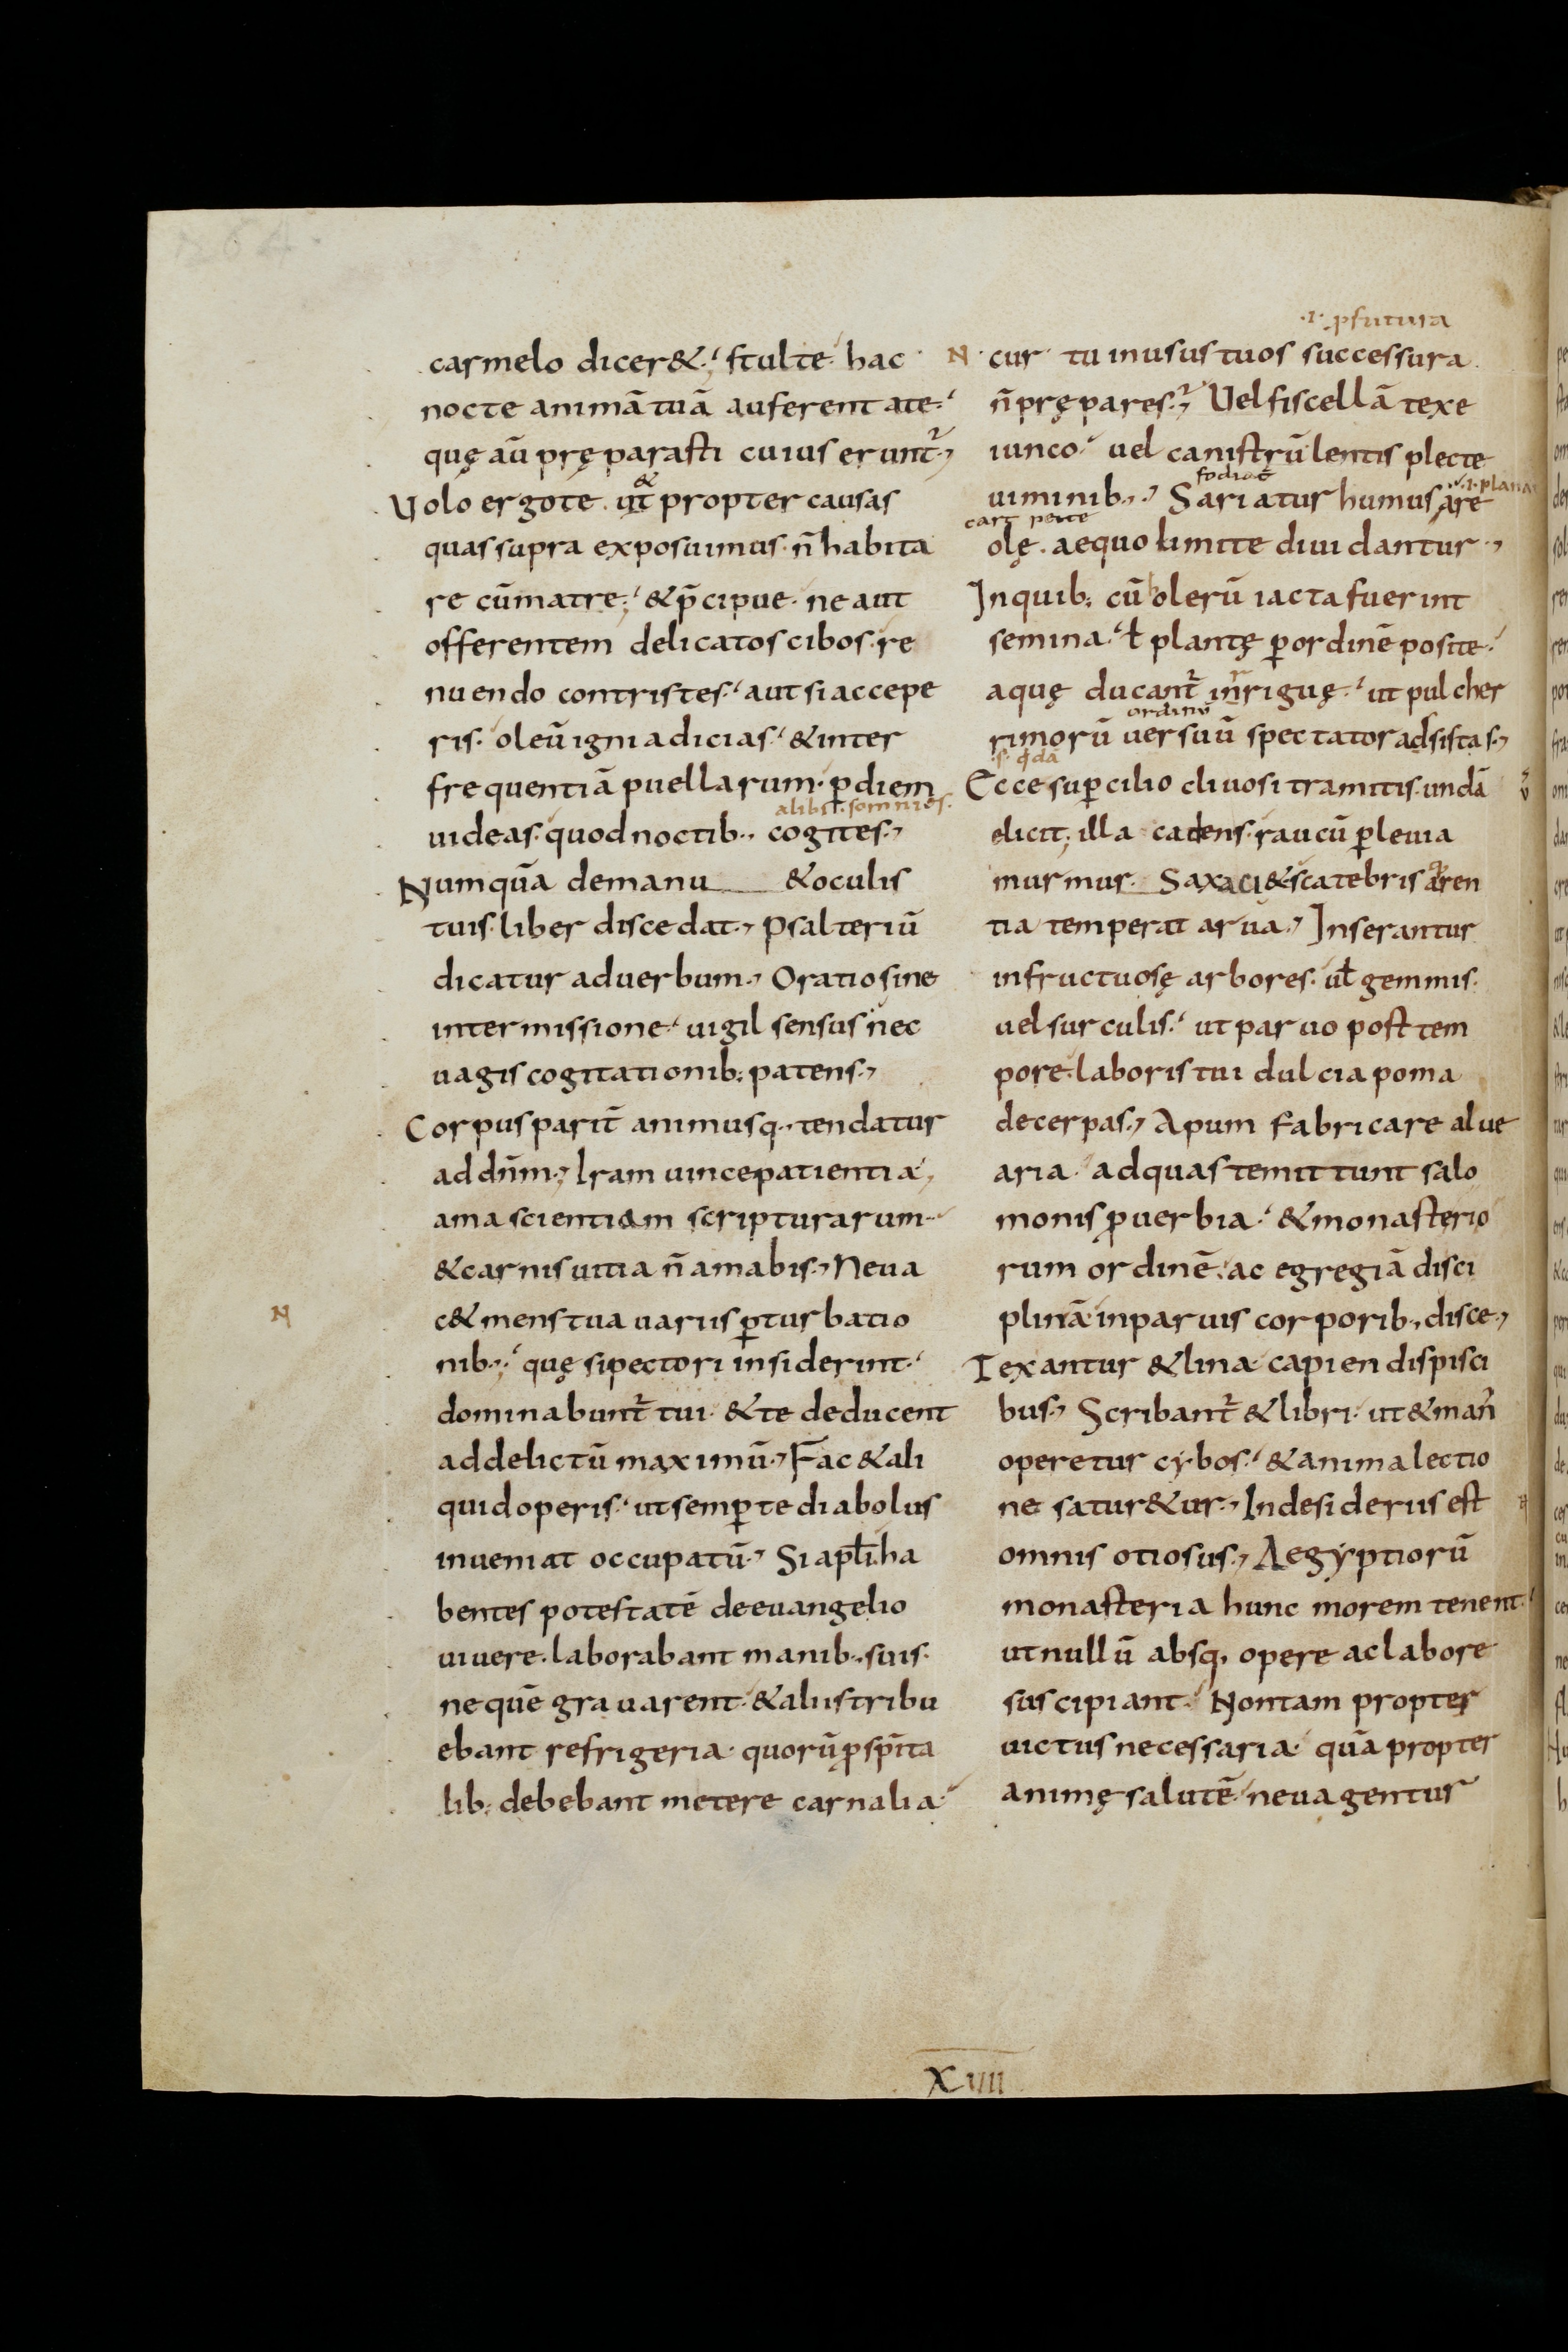 carmelo dicer&. stulte hac
nocte animā tuā auferent a te.
quę aū pręparasti cuius erunt̄.
&
Volo ergo te. ut propter causas
quas supra exposuimus. n̄ habita
re cū matre. & p̄cipue. ne aut
offerentem delicatos cibos. re
nuendo contristes. aut si accepe
ris. oleū igni adicias. & inter
frequentiā puellarum. ꝑ diem
alibi somnies.
uideas. quod noctib. cogites.
Numquā de manu & oculis
tuis. liber discedat. Psalteriū
dicatur ad uerbum. Oratio sine
intermissione. uigil sensus nec
uagis cogitationib: patens.
Corpus parit̄ animusq. tendatur
ad dn̄m. Iram uince patientia,
ama scientiam scripturarum
& carnis uitia n̄ amabis. Ne ua
N
c& mens tua uariis ꝑturbatio
nib. quę si pectori insiderint.
dominabunt̄ tui. & te deducent
ad delictū maximū. Fac & ali
quid operis. ut semꝑ te diabolus
inueniat occupatū. Si apłi. ha
bentes potestatē de euangelio
uiuere. laborabant manib. suis.
ne quē grauarent. & aliis tribu
ebant refrigeria. quorū ꝓ spīta
lib: debebant metere carnalia.
.i. ꝓfutura
N cur tu in usus tuos successura
n̄ prępares. Vel fiscellā texe
iunco. uel canistrū lentis plecte
fodiat̄
.i. plana
uiminib. Sariatur humus, are
olę. aequo limite diuidantur.
In quib: cū holerū iacta fuerint
semina. ł plantę ꝑ ordinē posite.
aquę ducant̄ inriguę. ut pulcher
ordinū
rimorū uersuū spectator adsistas.
.s. q̄dā
Ecce suꝑcilio cliuosi tramitis. undā
elicit, illa cadens. raucū ꝑ leuia
murmur. Saxa ci& scatebris aren
tia temperat arua. Inserantur
infructuosę arbores. uł gemmis.
uel surculis. ut paruo post tem
pore. laboris tui dulcia poma
decerpas. Apum fabricare alue
aria. ad quas te mittunt salo
monis ꝓuerbia. & monasterio
rum ordinē. ac egregiā disci
plinā in paruis corporib. disce.
Texantur & lina capiendis pisci
bus. Scribant̄ & libri. ut & man̄
operetur cybos. & anima lectio
ne satur&ur. In desideriis est
omnis otiosus. Aegyptiorū
monasteria hunc morem tenent.
ut nullū absq. opere ac labore
suscipiant. Non tam propter
uictus necessaria. quā propter
animę salutē. ne uagentur
XVIII